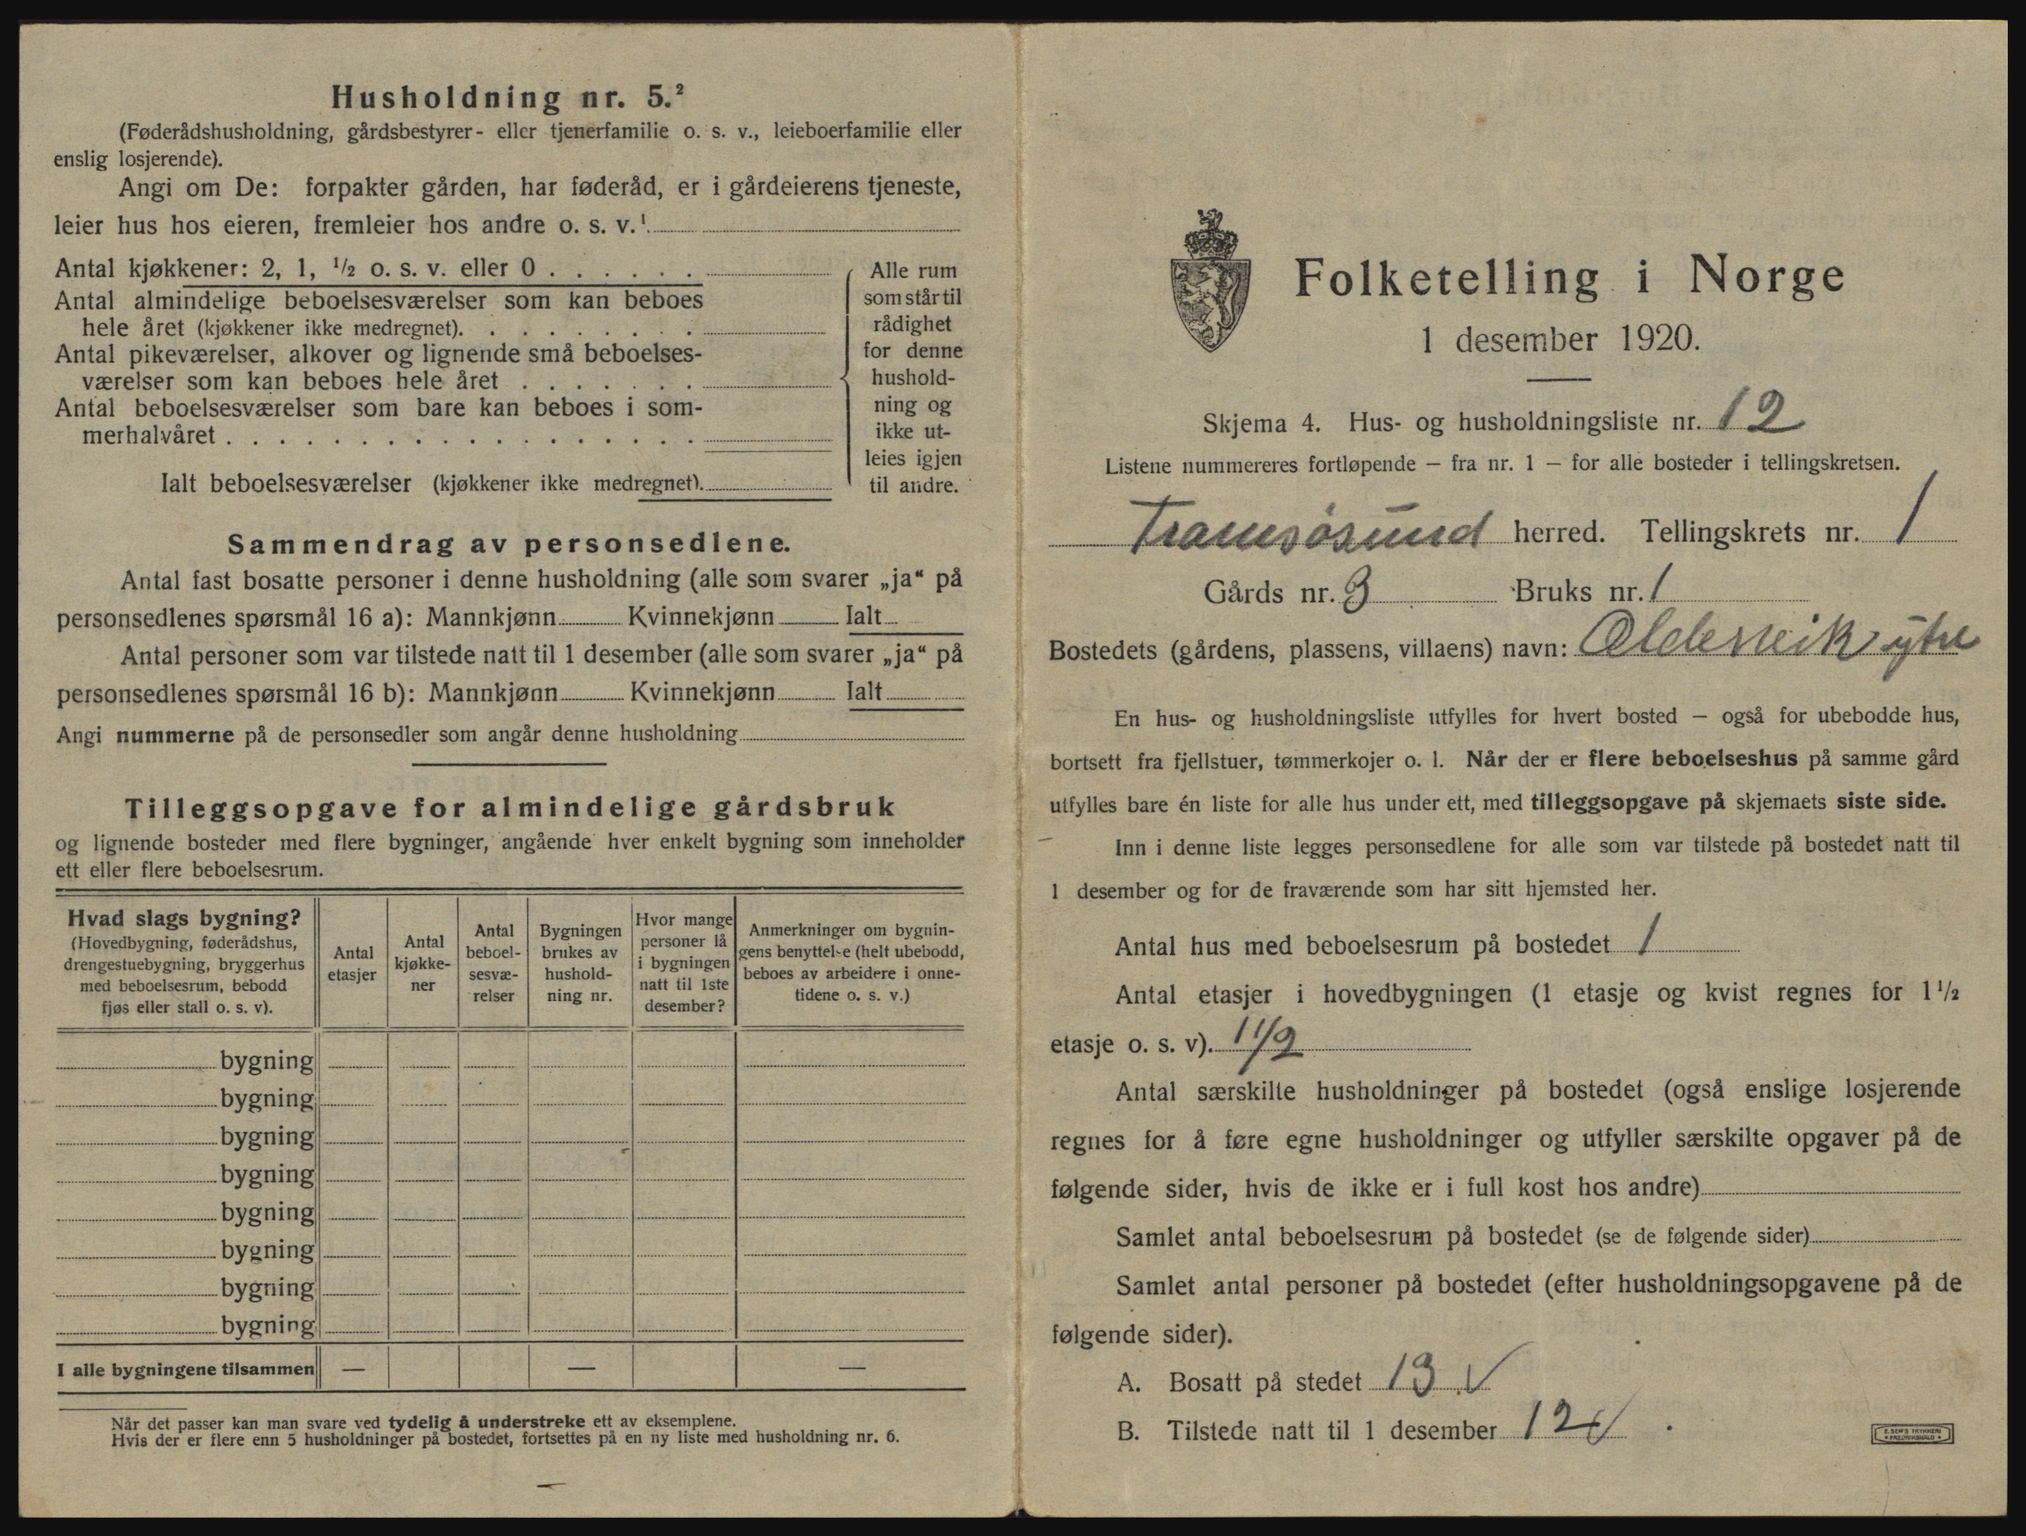 Husholdning nr. 5.²
(Føderådshusholdning, gårdsbestyrer- eller tjenerfamilie o. s. v., leieboerfamilie eller
enslig losjerende).
Angi om De: forpakter gården, har føderåd, er i gårdeierens tjeneste,
leier hus hos eieren, fremleier hos andre o. s. v.¹
Antal kjøkkener: 2, 1, ½ o. s. v. eller 0 . . . . . .
Antal almindelige beboelsesværelser som kan beboes
hele året (kjøkkener ikke medregnet). . . . . . . . .
Antal pikeværelser, alkover og lignende små beboelses-
værelser som kan beboes hele året . . . . . . .
Antal beboelsesværelser som bare kan beboes i som-
merhalvåret . . . . . . . . . . . . . . . . . .
Ialt beboelsesværelser (kjøkkener ikke medregnet).
Alle rum
som står til
rådighet
for denne
hushold-
ning og
ikke ut-
leies igjen
til andre.
Sammendrag av personsedlene.
Antal fast bosatte personer i denne husholdning (alle som svarer „ja“ på
personsedlenes spørsmål 16 a): Mannkjønn Kvinnekjønn Ialt
Antal personer som var tilstede natt til 1 desember (alle som svarer „ja“ på
personsedlenes spørsmål 16 b): Mannkjønn Kvinnekjønn Ialt
Angi nummerne på de personsedler som angår denne husholdning
Tilleggsopgave for almindelige gårdsbruk
og lignende bosteder med flere bygninger, angående hver enkelt bygning som inneholder
ett eller flere beboelsesrum.
Hvad slags bygning?
(Hovedbygning, føderådshus,
drengestuebygning, bryggerhus
med beboelsesrum, bebodd
fjøs eller stall o. s. v).
Antal
etasjer
Antal
kjøkke-
ner
Antal
beboel-
sesvæ-
relser
Bygningen
brukes av
hushold-
ning nr.
Hvor mange
personer lå
i bygningen
natt til 1ste
desember?
Anmerkninger om bygnin-
gens benyttelse (helt ubebodd,
beboes av arbeidere i onne-
tidene o. s. v.)
bygning
bygning
bygning
bygning
bygning
bygning
bygning
bygning
I alle bygningene tilsammen — — —
Når det passer kan man svare ved tydelig å understreke ett av eksemplene.
Hvis der er flere enn 5 husholdninger på bostedet, fortsettes på en ny liste med husholdning nr. 6.
Folketelling i Norge
1 desember 1920.
Skjema 4. Hus- og husholdningsliste nr. 12
Listene nummereres fortløpende – fra nr. 1 – for alle bosteder i tellingskretsen.
Tromsøsund herred. Tellingskrets nr. 1
Gårds nr. 3 Bruks nr. 1
Bostedets (gårdens, plassens, villaens) navn: Oldervik ytre
En hus- og husholdningsliste utfylles for hvert bosted – også for ubebodde hus,
bortsett fra fjellstuer, tømmerkojer o. l. Når der er flere beboelseshus på samme gård
utfylles bare én liste for alle hus under ett, med tilleggsopgave på skjemaets siste side.
Inn i denne liste legges personsedlene for alle som var tilstede på bostedet natt til
1 desember og for de fraværende som har sitt hjemsted her.
Antal hus med beboelsesrum på bostedet 1
Antal etasjer i hovedbygningen (1 etasje og kvist regnes for 1½
etasje o. s. v). 1 1/2
Antal særskilte husholdninger på bostedet (også enslige losjerende
regnes for å føre egne husholdninger og utfyller særskilte opgaver på de
følgende sider, hvis de ikke er i full kost hos andre)
Samlet antal beboelsesrum på bostedet (se de følgende sider)
Samlet antal personer på bostedet (efter husholdningsopgavene på de
følgende sider).
A. Bosatt på stedet 13 √
B. Tilstede natt til 1 desember 12 √